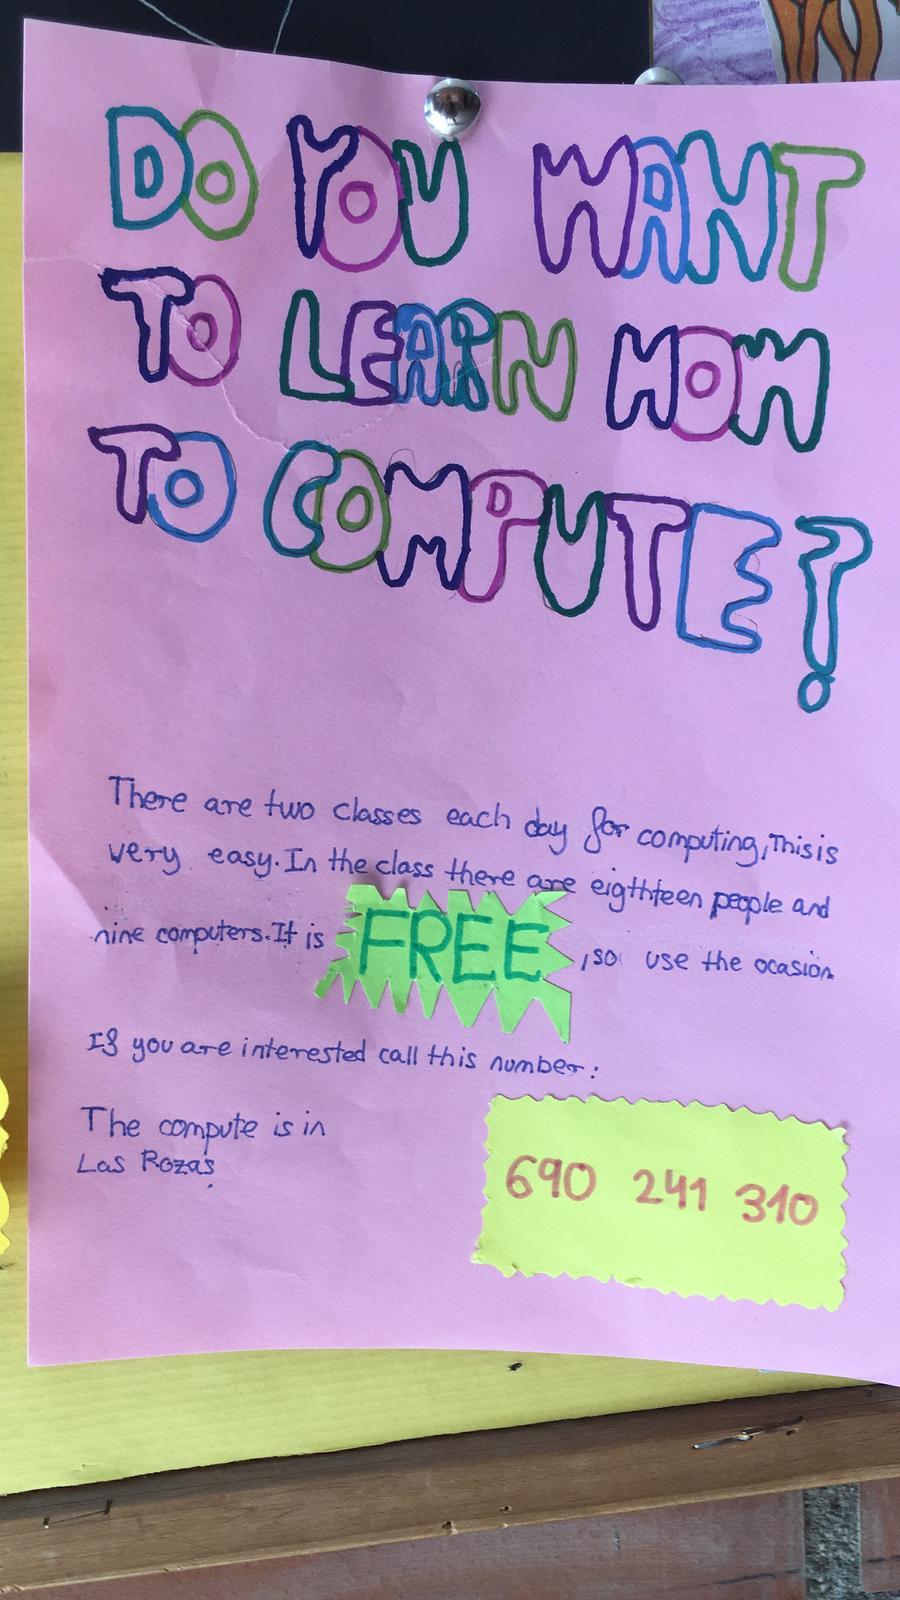 DO YOU WANT
TO LEARN HOW
TO COMPUTE?
There are two classes each day for computing, This is
very easy. In the class there are eighthteen people and
nine computers. It is FREE, so use the ocasion
If you are interested call this number:
The compute is in
Las Rozas
690 241 310